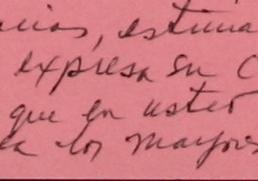 cias, estima
expresa su C
que en usted
ea los mayores